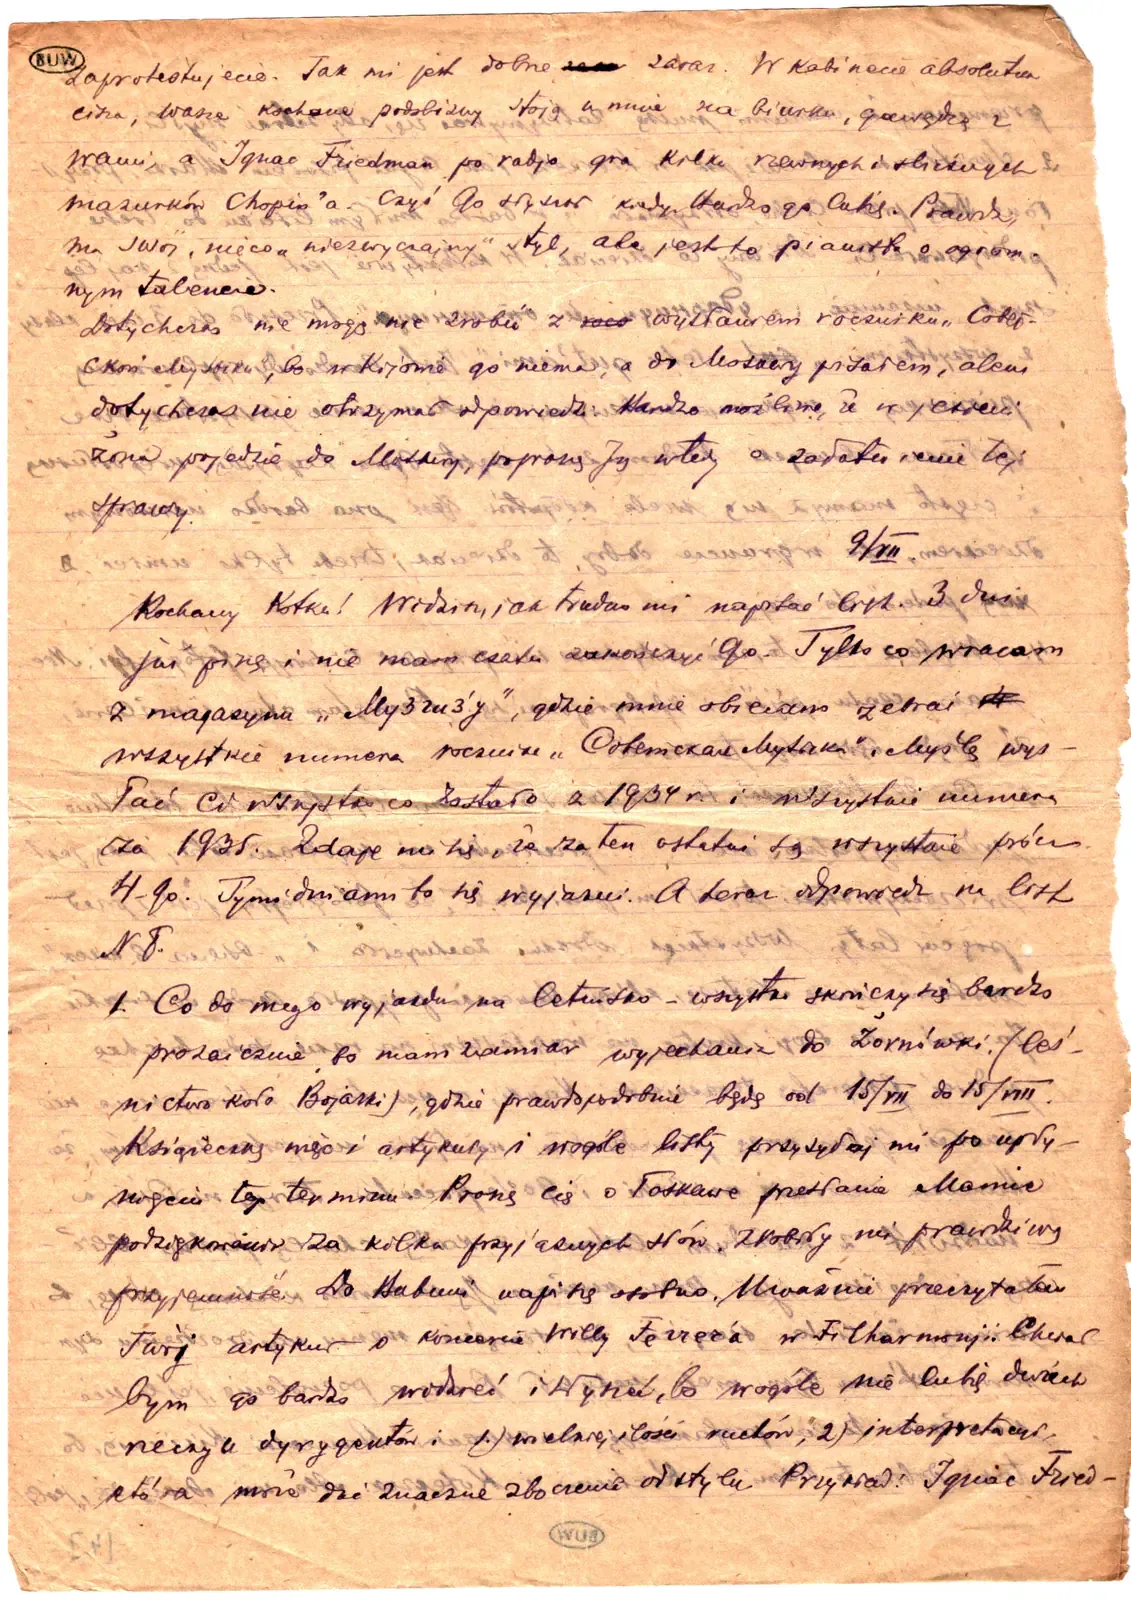 BUW
zaprotestujecie. Tak mi jest dobrze zaraz. W kabinecie absolutna
cisza, wasze kochane podobizny stoją u mnie na biurku, gawędzę z
wami, a Ignac Friedman po radjo gra kilka rzewnych i ślicznych
mazurków Chopin'a. Czyś Go słyszał kiedy. Bardzo go lubię. Prawda,
ma swój, nieco „niezwyczajny" styl, ale jest to pianista o ogrom-
nym talencie.
Dotychczas nie mogę nic zrobić z wysłaniem rocznika „Совет-
ской Музыки", bo w Kijowie go niema, a do Moskwy pisałem, alem
dotychczas nie otrzymał odpowiedzi. Bardzo możliwe, że w jesieni
Żona pojedzie do Moskwy, poproszę Ją wtedy o załatwienie tej
sprawy.
9/VII.
Kochany Kotku! Widzisz, jak trudno mi napisać list. 3 dni
już piszę i nie mam czasu zakończyć Go. Tylko co wracam
z magazynu „Музгизу", gdzie mnie obiecano zebrać
wszystkie numera rocznika „Советская Музыка". Myślę wys-
łać Ci wszystko co zostało z 1934 r. i wszystkie numera
za 1935. Zdaje mi się, że za ten ostatni są wszystkie prócz
4-go. Tymi dniami to się wyjaśni. A teraz odpowiedź na list
N 8.
1. Co do mego wyjazdu na letnisko – wszystko skończy się bardzo
prozaicznie, bo mam zamiar wyjechania do Żornówki (leś-
nictwo koło Bojarki), gdzie prawdopodobnie będę od 15/VII do 15/VIII.
Książeczkę więc i artykuły i wogóle listy przysyłaj mi po upły-
nięciu tego terminu. Proszę Cię o łaskawe przesłanie Mamie
podziękowania za kilka przyjaznych słów. Zrobiły mi prawdziwą
przyjemność. Do Babuni napiszę osobno. Uważnie przeczytałem
Twój artykuł o koncercie Willy Ferrer'a w Filharmonji. Chciał
bym go bardzo widzieć i słyszeć, bo wogóle nie lubię dwóch
rzeczy u dyrygentów: 1) wielkiej ilości ruchów, 2) interpretacji,
która może dać znaczne zboczenie od stylu. Przykład: Ignac Fried-
BUW